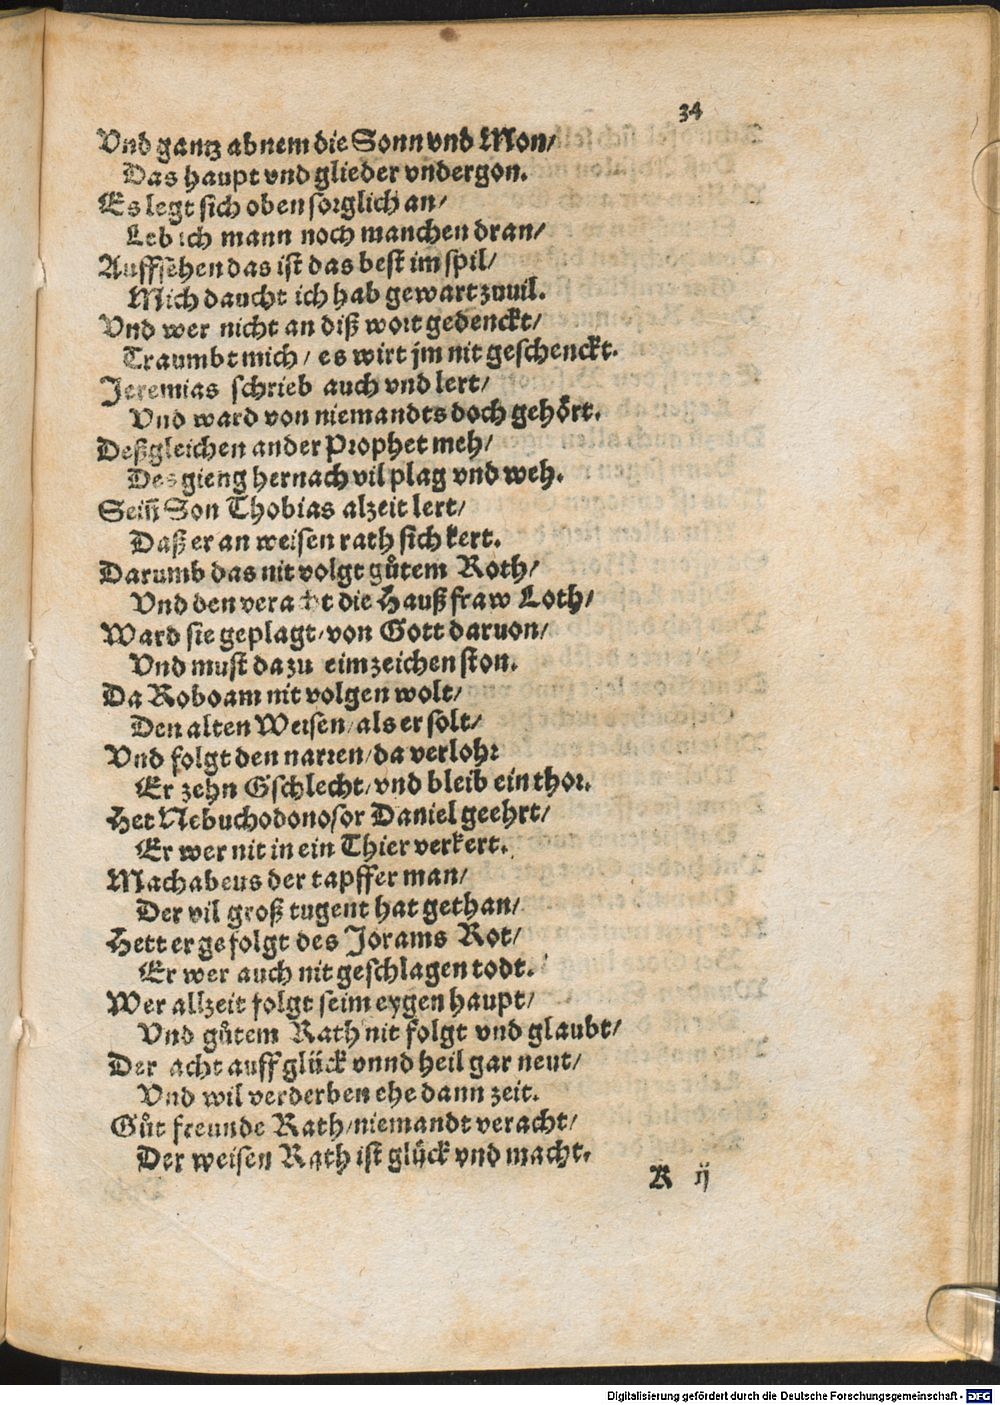 34
Vnd gantz abnem die Sonn vnd Mon/
Das haupt vnd glieder vndergon.
Es legt sich oben sorglich an/
Leb ich mann noch manchen dran/
Auffsehen das ist das best im spil/
Mich daucht ich hab gewart zuuil.
Vnd wer nicht an diß wort gedenckt/
Traumbt mich / es wirt jm nit geschenckt.
Jeremias schrieb auch vnd lert/
Vnd ward von niemandts doch gehört.
Deßgleichen ander Prophet meh/
Des gieng hernach vil plag vnd weh.
Sein Son Thobias alzeit lert/
Daß er an weisen rath sich kert.
Darumb das nit volgt gůtem Roth/
Vnd den veracht die Hauß fraw Loth/
Ward sie geplagt/ von Gott daruon/
Vnd must da zu eim zeichen ston.
Da Roboam nit volgen wolt/
Den alten Weisen/ als er solt/
Vnd folgt den narren/ da verlohr
Er zehn Gschlecht/ vnd bleib ein thor.
Het Nebuchodonosor Daniel geehrt/
Er wer nit in ein Thier verkert.
Machabeus der tapffer man/
Der vil groß tugent hat gethan/
Hett er gefolgt des Jorams Rot/
Er wer auch nit geschlagen todt.
Wer allzeit folgt seim eygen haupt/
Vnd gůtem Rath nit folgt vnd glaubt/
Der acht auff glück vnnd heil gar neut/
Vnd wil verderben ehe dann zeit.
Gůt freunde Rath/ niemandt veracht/
Der weisen Rath ist glück vnd macht.
K ij
Digitalisierung gefördert durch die Deutsche Forschungsgemeinschaft - DFG